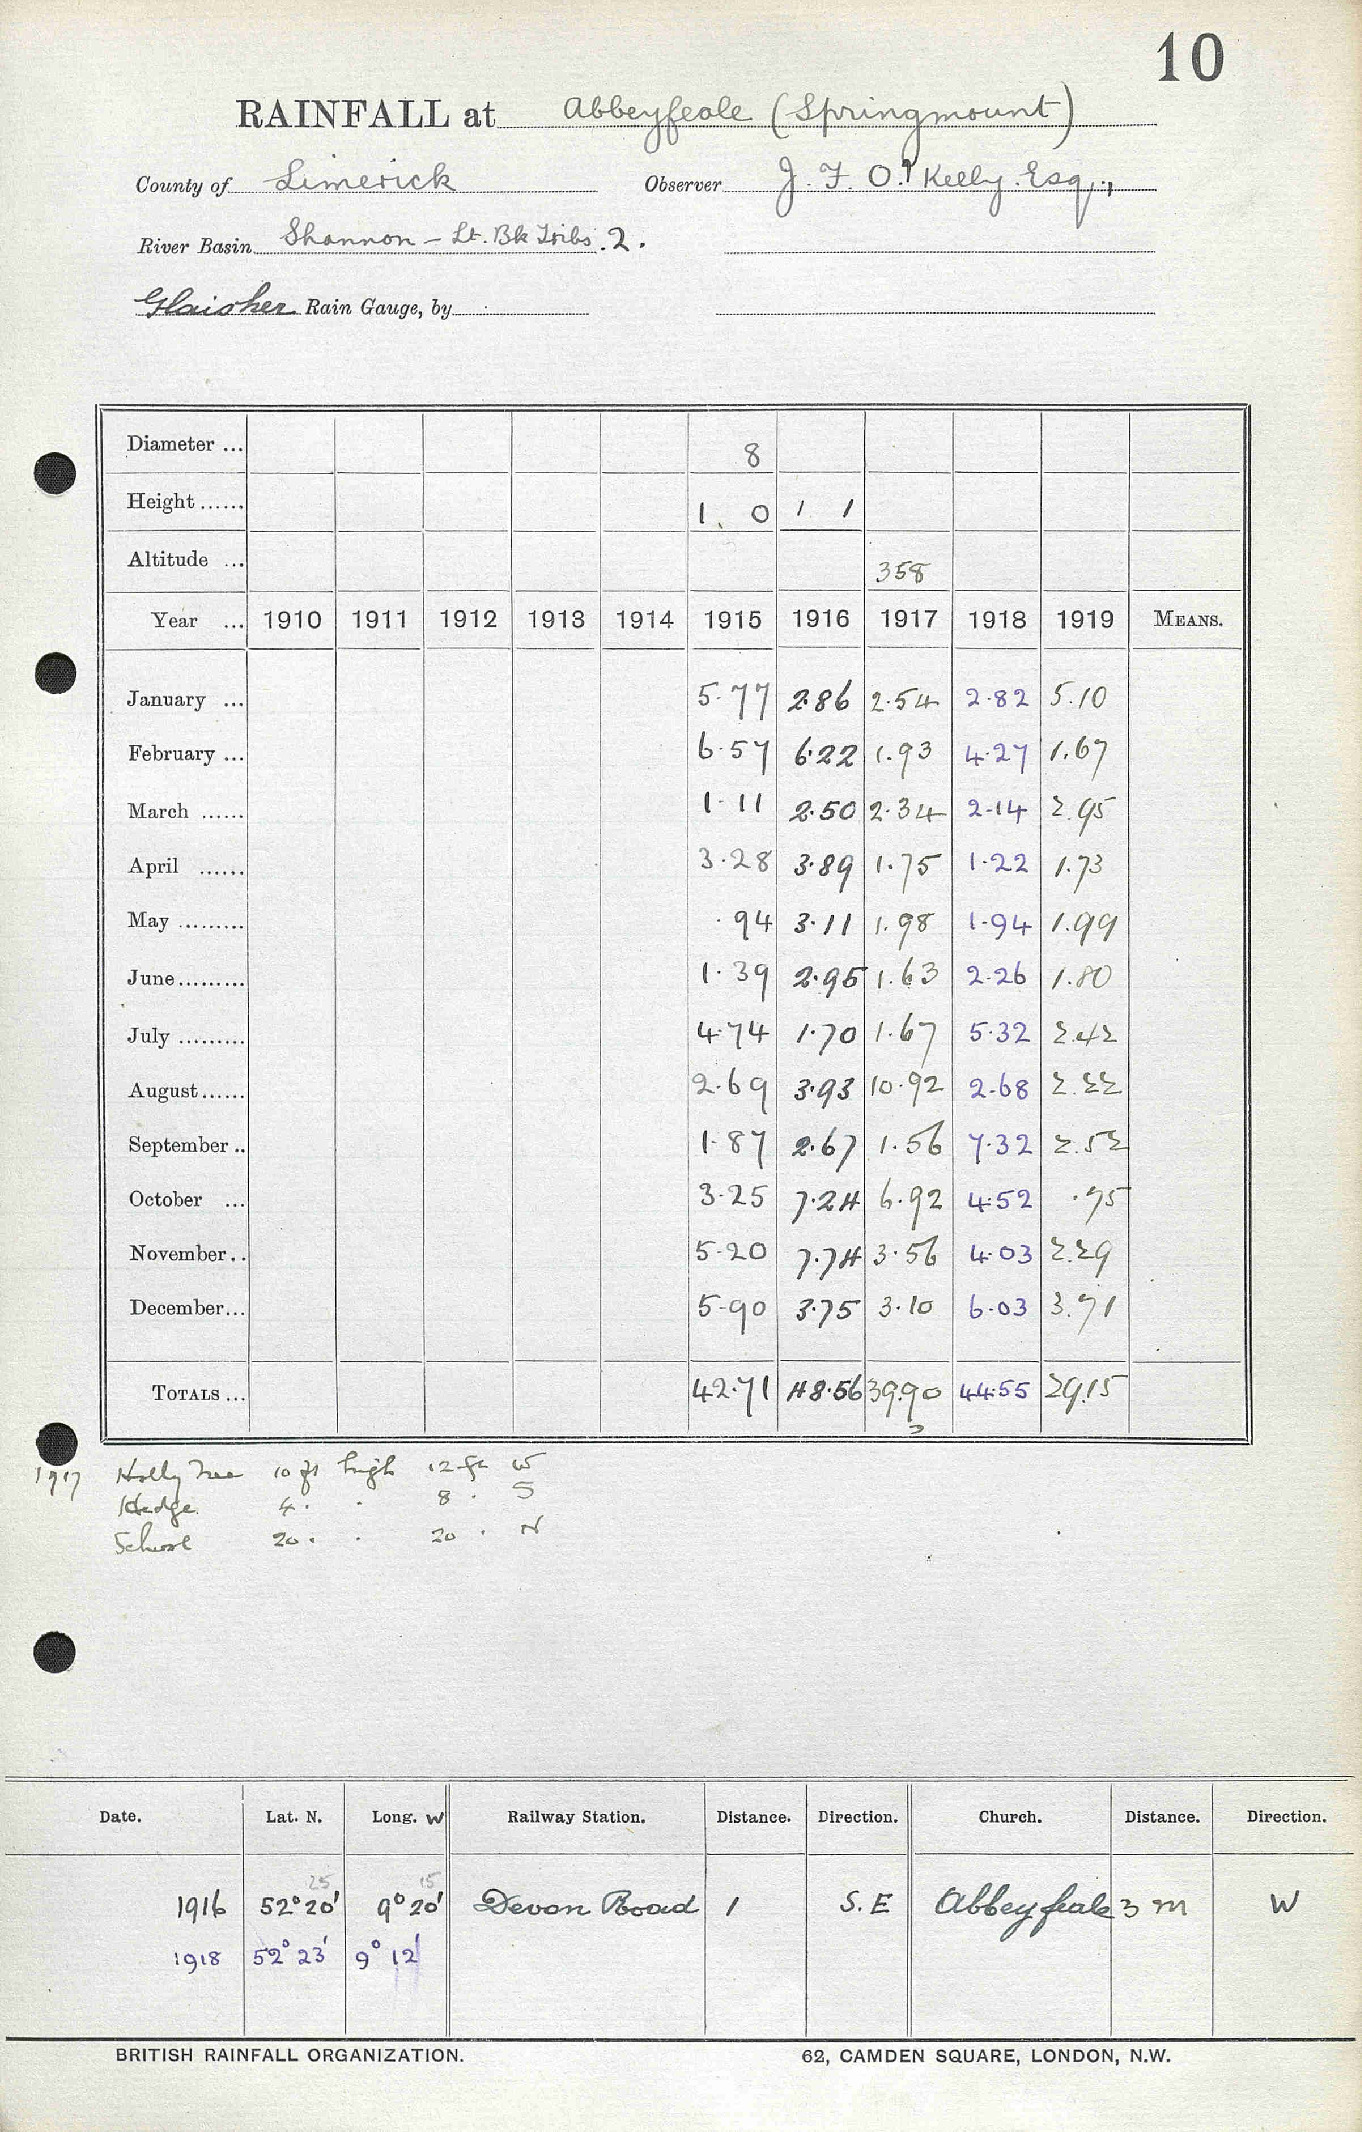 10
RAINFALL at Abbeyfeale (Springmount)
County of Limerick Observer J. F. O'Kelly. Esq.,
River Basin Shannon - Lt. Bk Tribs. 2.
Glaisher Rain Gauge, by
Diameter ... 8
Height ...... 1. 0 1 1
Altitude ... 358
Year ... 1910 1911 1912 1913 1914 1915 1916 1917 1918 1919 MEANS.
January ... 5.77 2.86 2.54 2.82 5.10
February ... 6.57 6.22 1.93 4.27 1.67
March ...... 1.11 2.50 2.34 2.14 2.95
April ...... 3.28 3.89 1.75 1.22 1.73
May ......... .94 3.11 1.98 1.94 1.99
June ......... 1.39 2.95 1.63 2.26 1.80
July ......... 4.74 1.70 1.67 5.32 2.42
August ...... 2.69 3.93 10.92 2.68 2.22
September .. 1.87 2.67 1.56 7.32 2.52
October ... 3.25 7.24 6.92 4.52 .75
November .. 5.20 7.74 3.56 4.03 2.29
December ... 5.90 3.75 3.10 6.03 3.71
TOTALS ... 42.71 48.56 39.90 44.55 29.15
3
1917 Holly Tree 10 ft high 12 ft W
Hedge 4 . . 8 . S
School 20 . . 20 . N
Date. Lat. N. Long. W Railway Station. Distance. Direction. Church. Distance. Direction.
25 15
1916 52° 20' 9° 20' Devon Road 1 S.E Abbeyfeale 3 m W
1918 52° 23' 9° 12'
BRITISH RAINFALL ORGANIZATION. 62, CAMDEN SQUARE, LONDON, N.W.